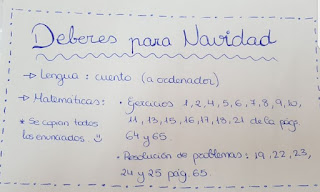 Deberes para Navidad
→ Lengua : cuento (a ordenador)
→ Matemáticas : • Ejercicios 1, 2, 4, 5, 6, 7, 8, 9, 10,
* Se copian todos 11, 13, 15, 16, 17, 18, 21 de la pág.
los enunciados. 64 y 65.
• Resolución de problemas : 19, 22, 23,
24 y 25 pág. 65.